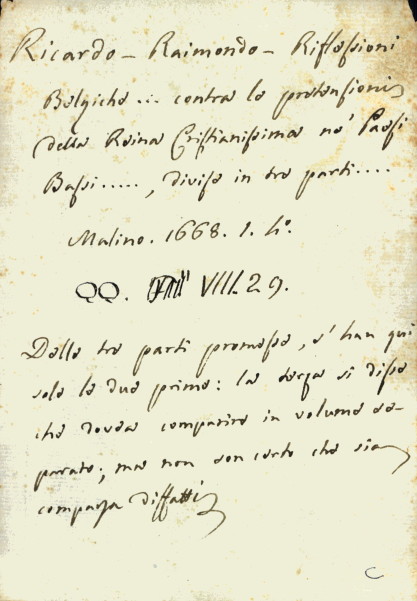 Ricardo - Raimondo - Riflessioni
Belgiche ... contra le pretensioni
della Reina Cristianissima ne' Paesi
Bassi ....., divise in tre parti ....
Maline. 1668. 1. 4°.
QQ. VIII. 29.
Delle tre parti promesse, s' han qui
sole le due prime: la terza si disse
che dovea comparire in volume se-
parato; ma non son certo che sia
comparsa diffatti
C